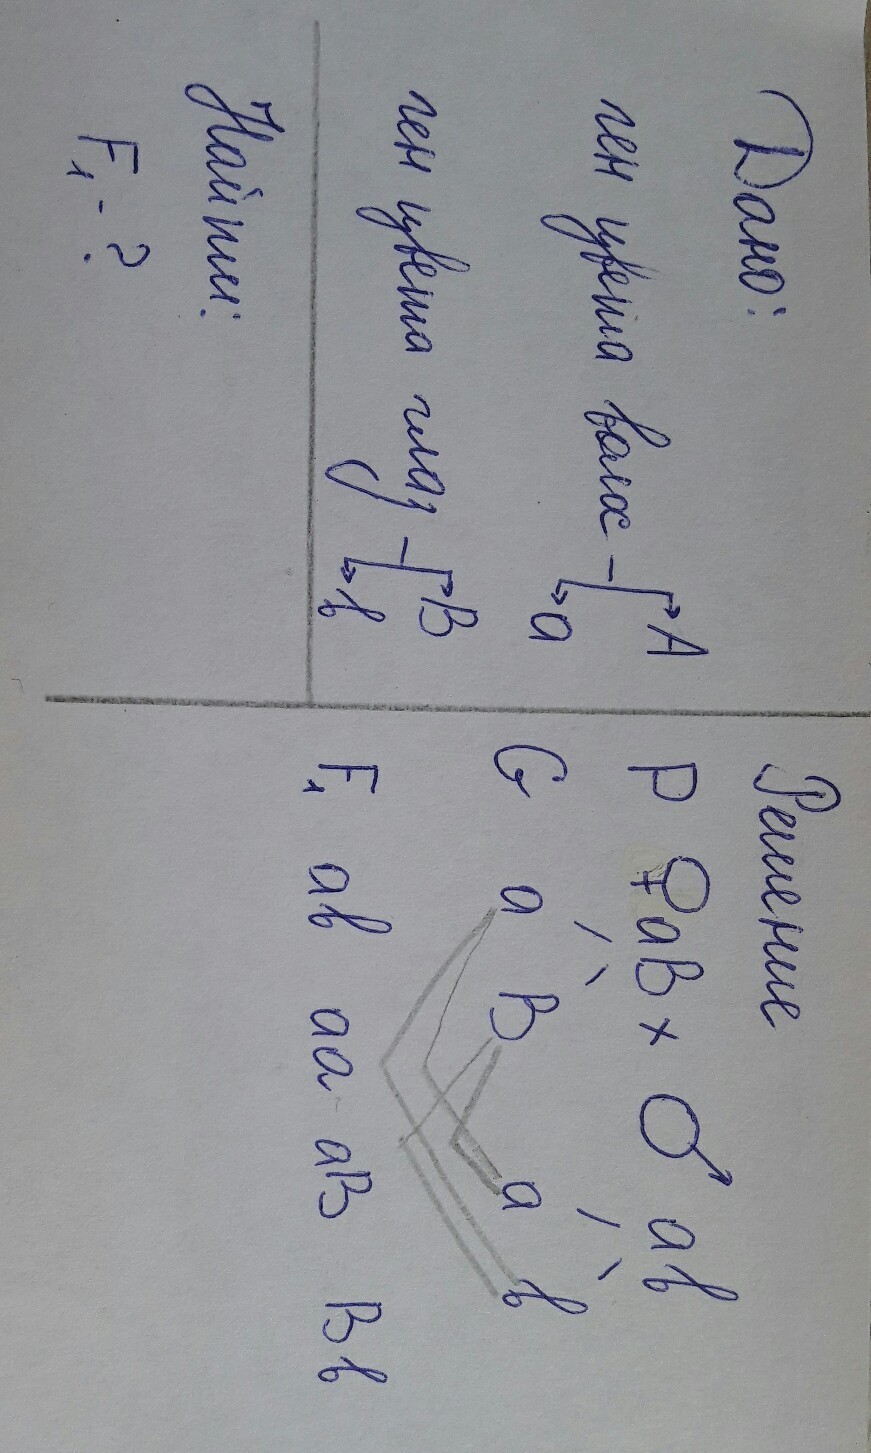 Дано:
ген цвета волос - A
a
ген цвета глаз - B
b
Найти:
F1 - ?
Решение
P ♀ aB x ♂ ab
G a B a b
F1 ab aa aB Bb